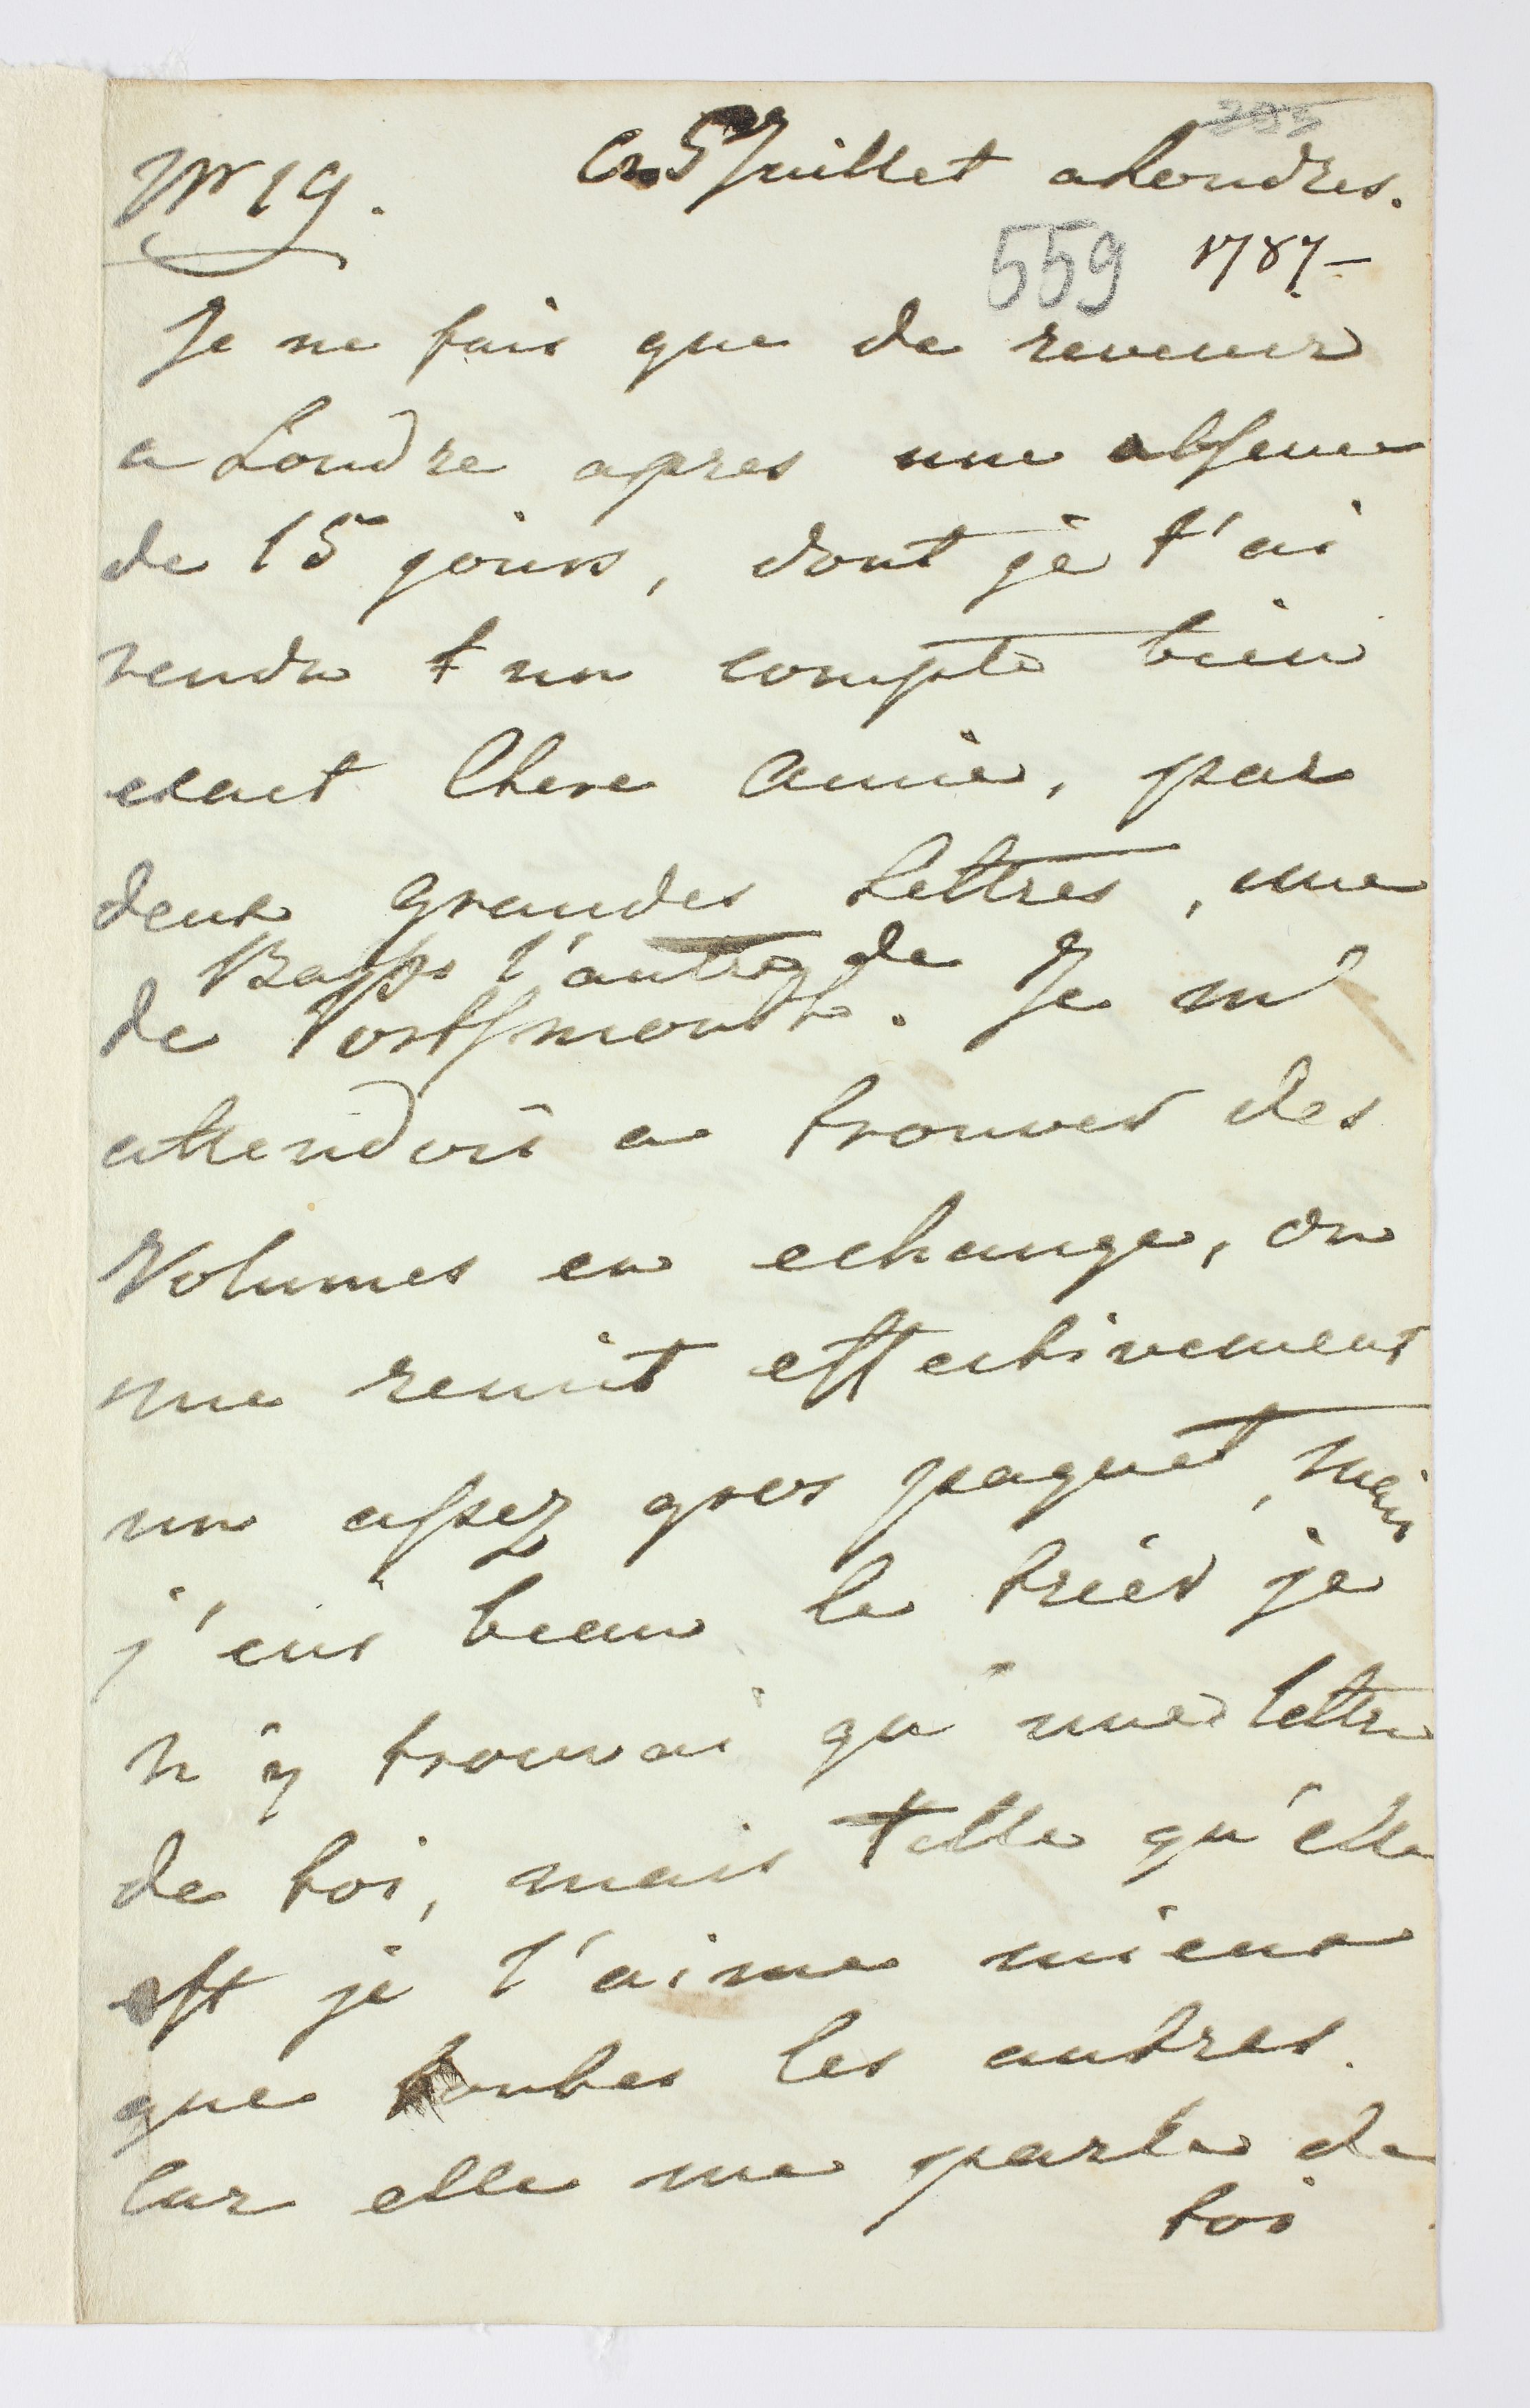 Nr 19.
Ce 5 Juillet a Londres.
559 1787-
Je ne fais que de revenir
a Londre apres une absence
de 15 jours, dont je t'ai
rendu t un compte bien
exact Chere Amie, par
deux grandes Lettres, une
l'autre de
de Portsmouth. Je m'
attendois a trouver des
Volumes en echange, on
me remit effectivement
un assez gros paquet, mais
j'eus beau le trier je
n'y trouvai qu'une lettre
de toi, mais telle qu'elle
est je l'aime mieux
que toutes les autres.
Car elle me parle de
toi